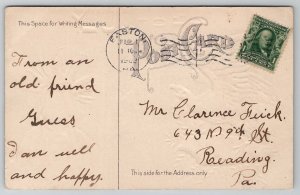 This Space for Writing Messages
EASTON
Post Card
From an
old friend
Guess
I am well
and happy.
Mr Clarence Fück.
643 N 9th St.
Reading.
Pa.
This side for the Address only